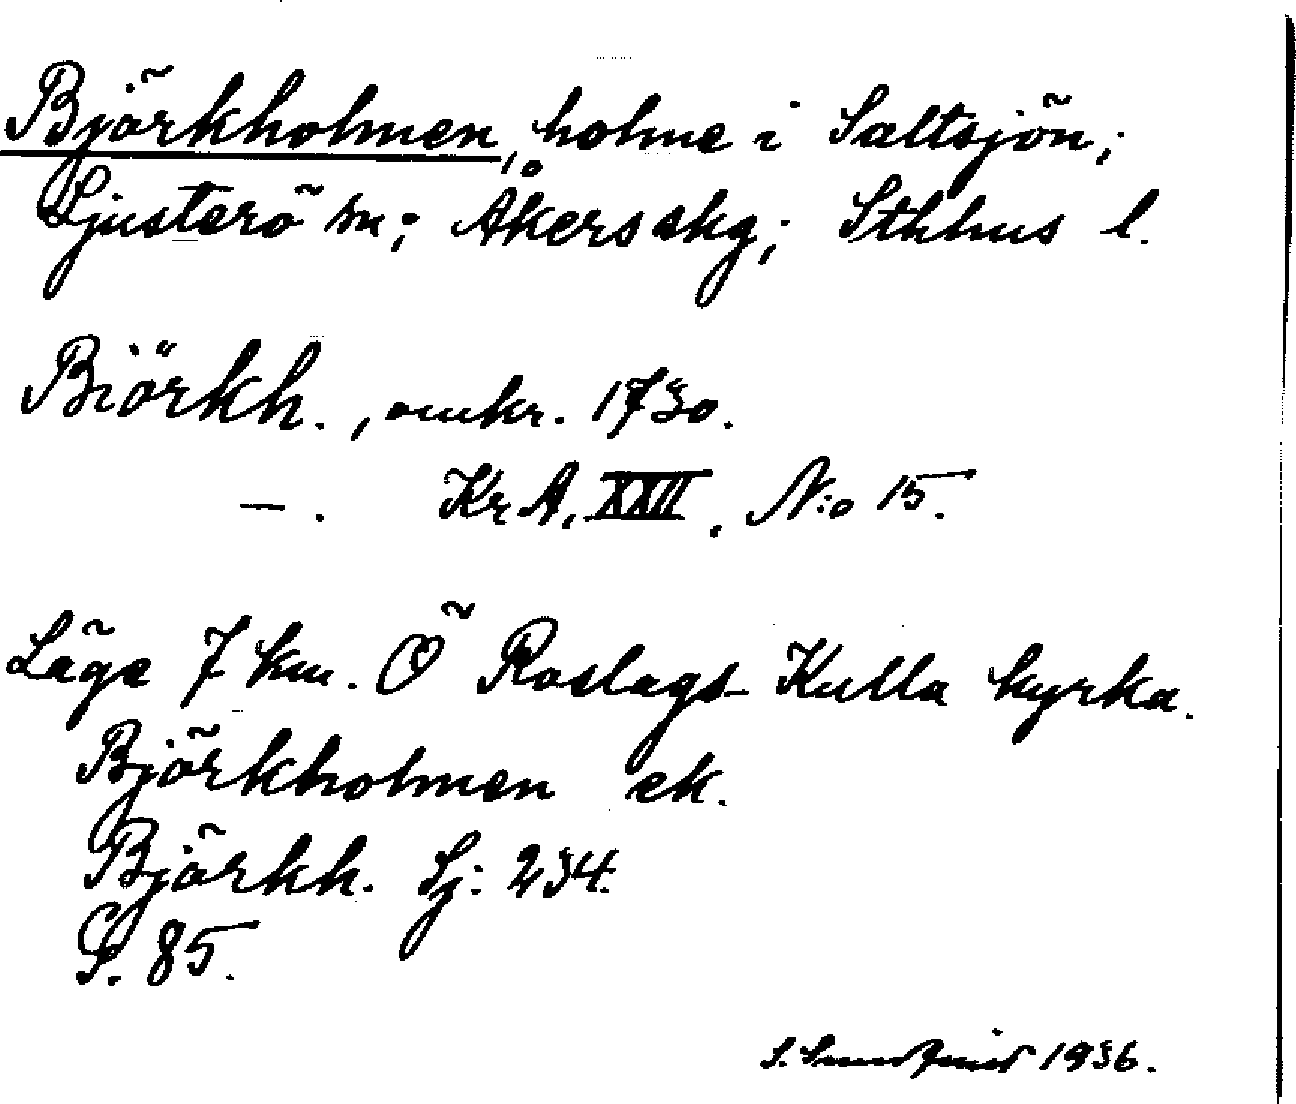 Björkholmen, holme i Saltsjön;
Ljusterö sn; Åkers skg; Sthlms l.
Biörkh., omkr. 1730.
— . KrA, XXII, N:o 15.
Läge 7 km. Ö Roslags-Kulla kyrka.
Björkholmen ek.
Björkh. Lj: 234.
S. 85.
1936.